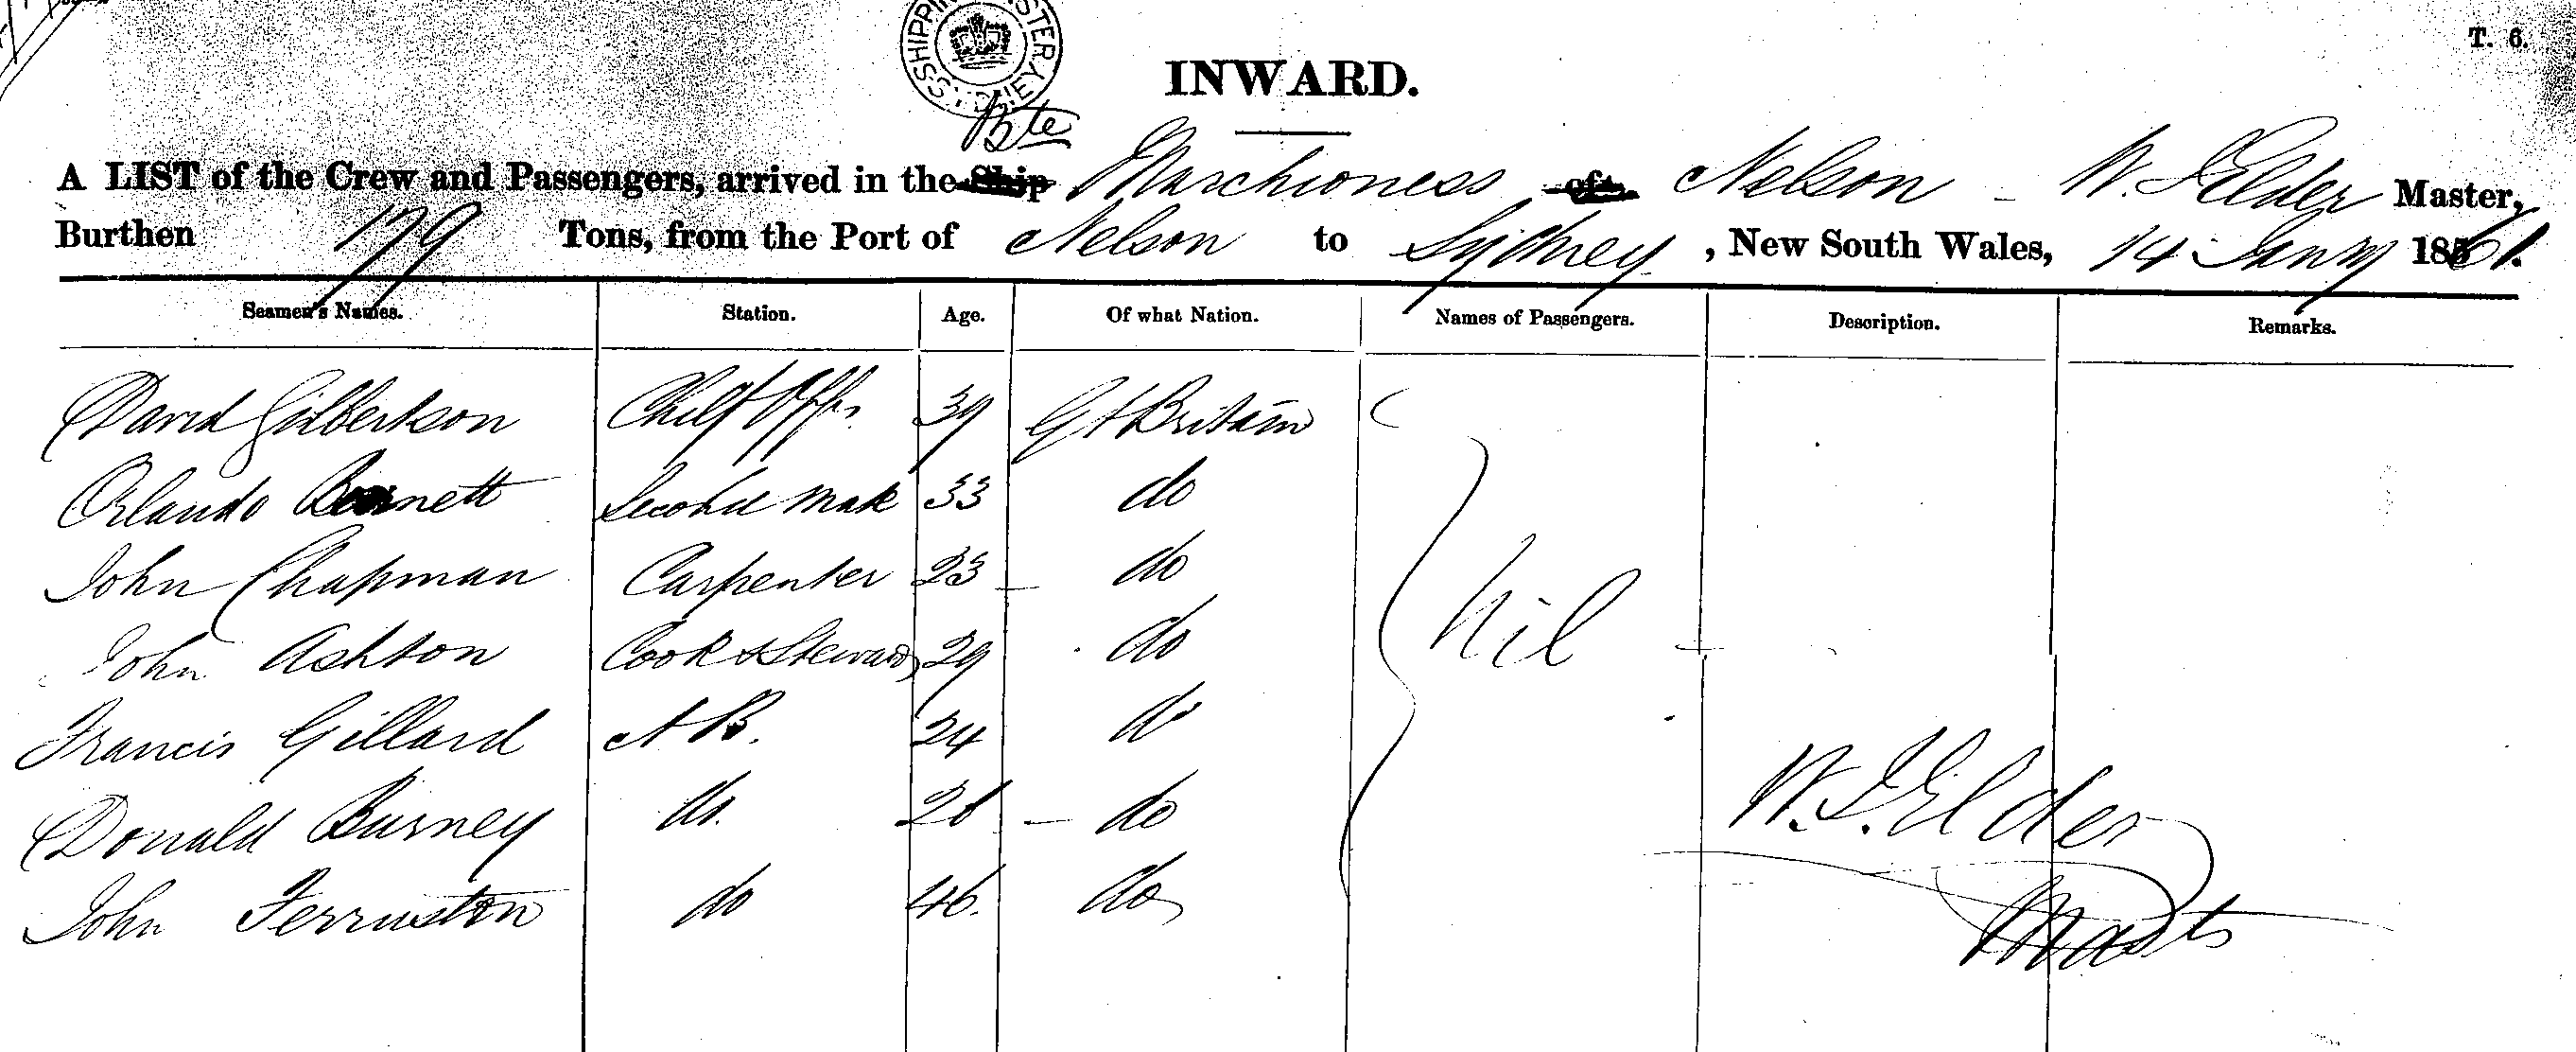 T. 6.
SHIPPING MASTER SYDNEY
INWARD.
Bte
A LIST of the Crew and Passengers, arrived in the Ship Marchioness of Nelson - W. J. Elder Master,
Burthen 179 Tons, from the Port of Nelson to Sydney, New South Wales, 14 Jany 1861.
Seamen's Names. Station. Age. Of what Nation. Names of Passengers. Description. Remarks.
David Gilbertson Chief Offr. 39 Gt Britain
Orlando Bennett Second Mate 33 do
John Chapman Carpenter 23 do
John Ashton Cook & Steward 29 do
nil
Francis Gillard A B. 24 do
Donald Burney do. 26 do
John do 46. do
W. J. Elder
Mastr